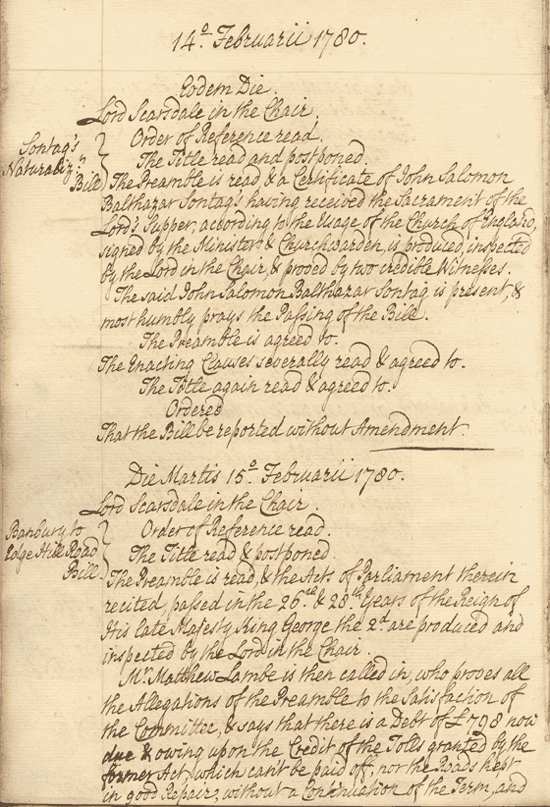 14º Februarii 1780.
Eodem Die.
Lord Scarsdale in the Chair.
Sontag's
Naturalizⁿ
Bill
Order of Reference read.
The Title read and postponed.
The Preamble is read & a Certificate of John Salomon
Balthazar Sontag's having received the Sacrament of the
Lord's Supper, according to the Usage of the Church of England,
signed by the Minister & Churchwarden, is produced, inspected
by the Lord in the Chair, & proved by two credible Witnesses.
The said John Salomon Balthazar Sontag is present, &
most humbly prays the Passing of the Bill.
The Preamble is agreed to.
The Enacting Clauses severally read & agreed to.
The Title again read & agreed to.
Ordered
That the Bill be reported without Amendment.
Die Martis 15º Februarii 1780.
Lord Scarsdale in the Chair
Banbury to
Edge Hill Road
Bill.
Order of Reference read.
The Title read & postponed.
The Preamble is read, & the Acts of Parliament therein
recited, passed in the 26th & 28th Years of the Reign of
His late Majesty King George the 2d are produced and
inspected by the Lord in the Chair.
Mr Matthew Lambe is then called in, who proves all
the Allegations of the Preamble to the Satisfaction of
the Committee, & says that there is a Debt of £798 now
due & owing upon the Credit of the Tolls granted by the
former Act, which can't be paid off, nor the Roads kept
in good Repair, without a Continuation of the Term, and